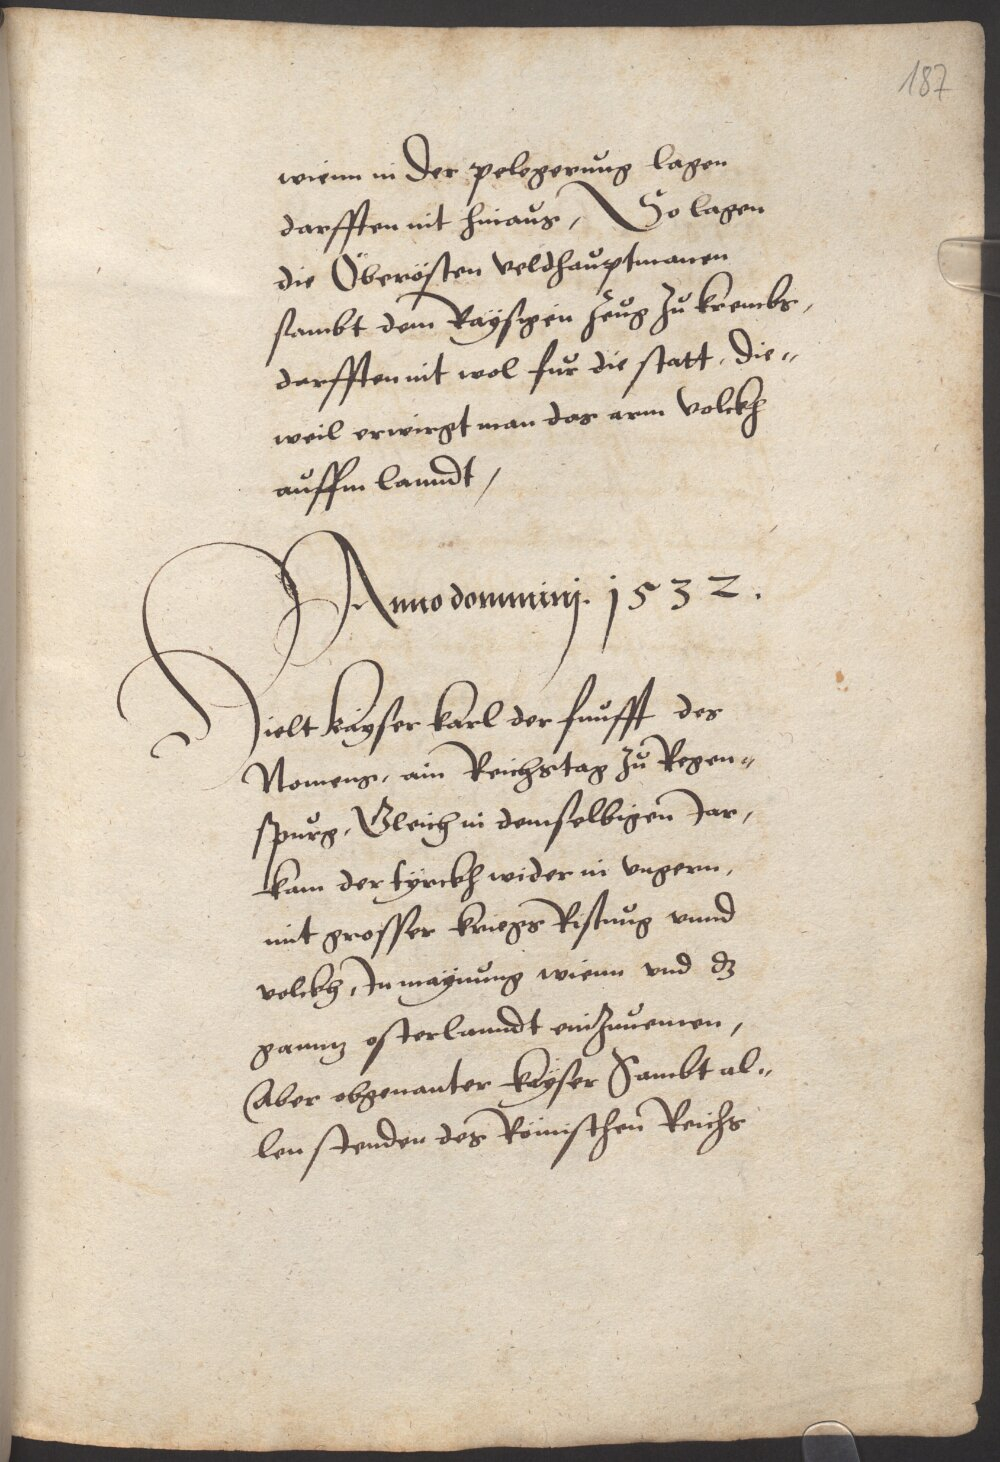 187
wienn in der pelegerung lagen
darfften nit hinaus, So lagen
die Öberösten veldhauptmanen
sambt dem Raÿsigen zeug zu krembs,
darfften nit wol für die statt, die„
weil erwirgt man das arm volckh
auffm lanndt,
Anno domminj. 1532.
Hielt kayser karl der funfft des
Nomens, ain Reichstag zu Regen„
spurg, Gleich in demselbigen Jar,
kam der tÿrckh wider in vngern,
mit grosser kriegs Ristung vnnd
volckh, In maÿnung wienn vnd dz
gannz osterlanndt einzunemen,
Aber obgenanter kaÿser Sambt al„
len stenden des Römischen Reichs